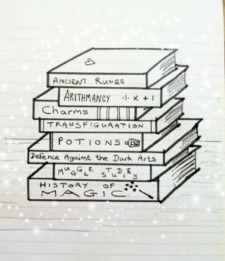 ANCIENT RUNES
ARITHMANCY -|· x + 1
Charms
TRANSFIGURATION
POTIONS
Defence Against the Dark Arts
MUGGLE STUDIES
HISTORY OF
MAGIC